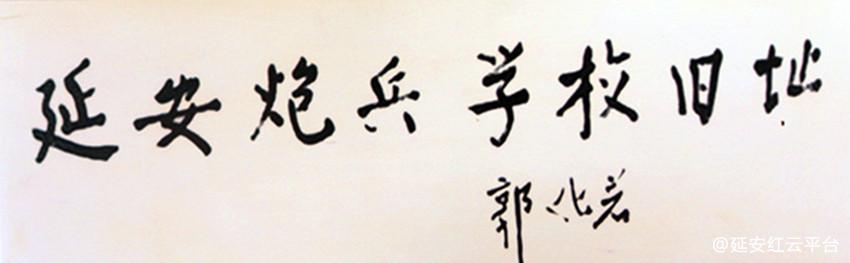 延安炮兵学校旧址
郭化若
@延安红云平台